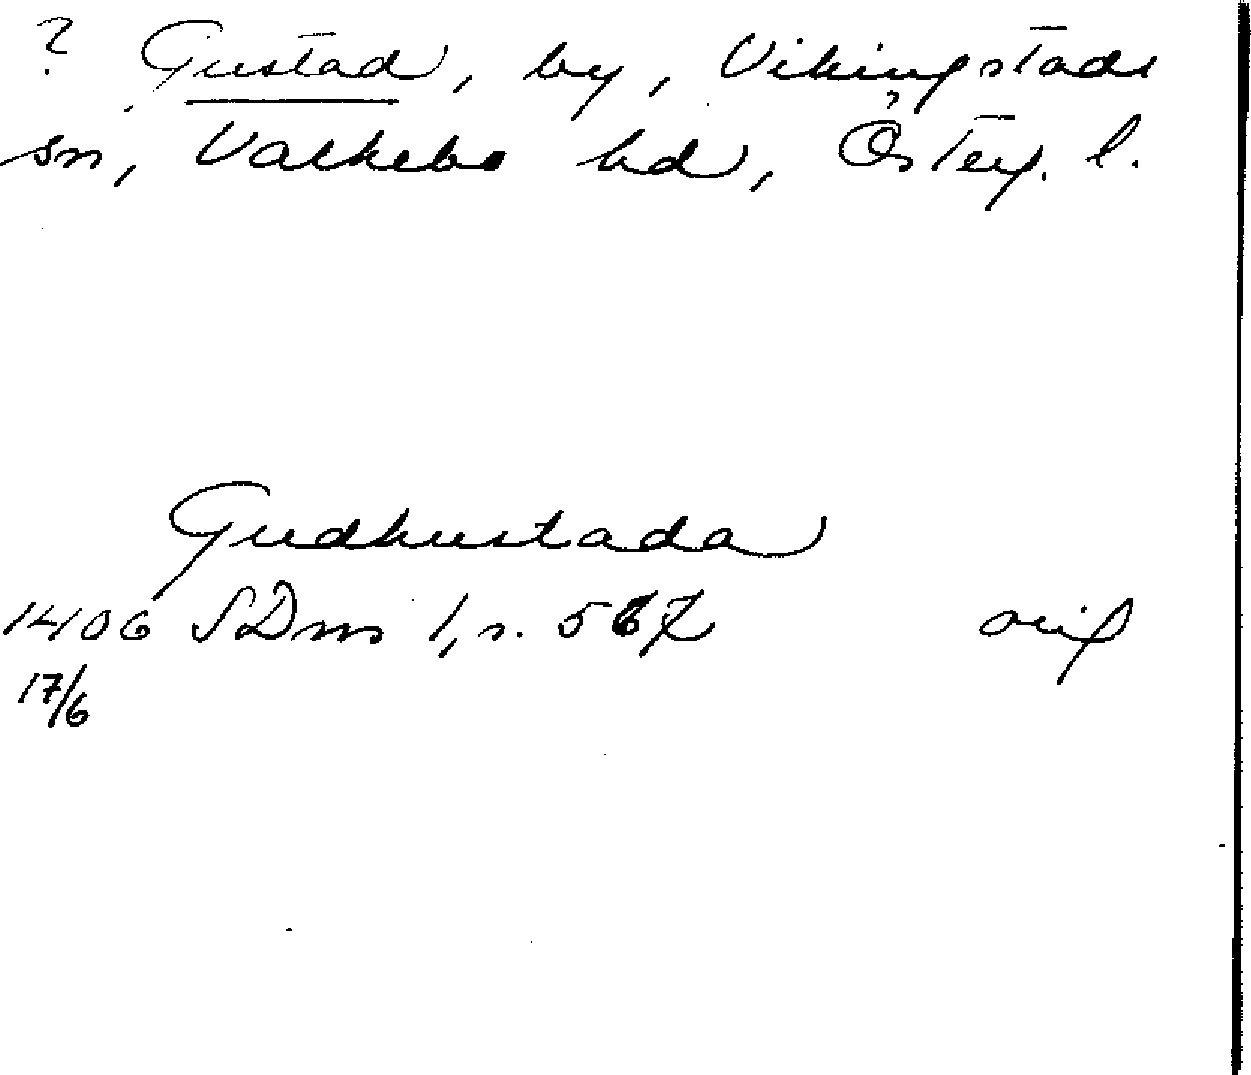 ? Gustad, by, Vikingstads
sn, Valkebo hd, Österg. l.
Gudhustada
1406 SDns 1, s. 567 orig
17/6